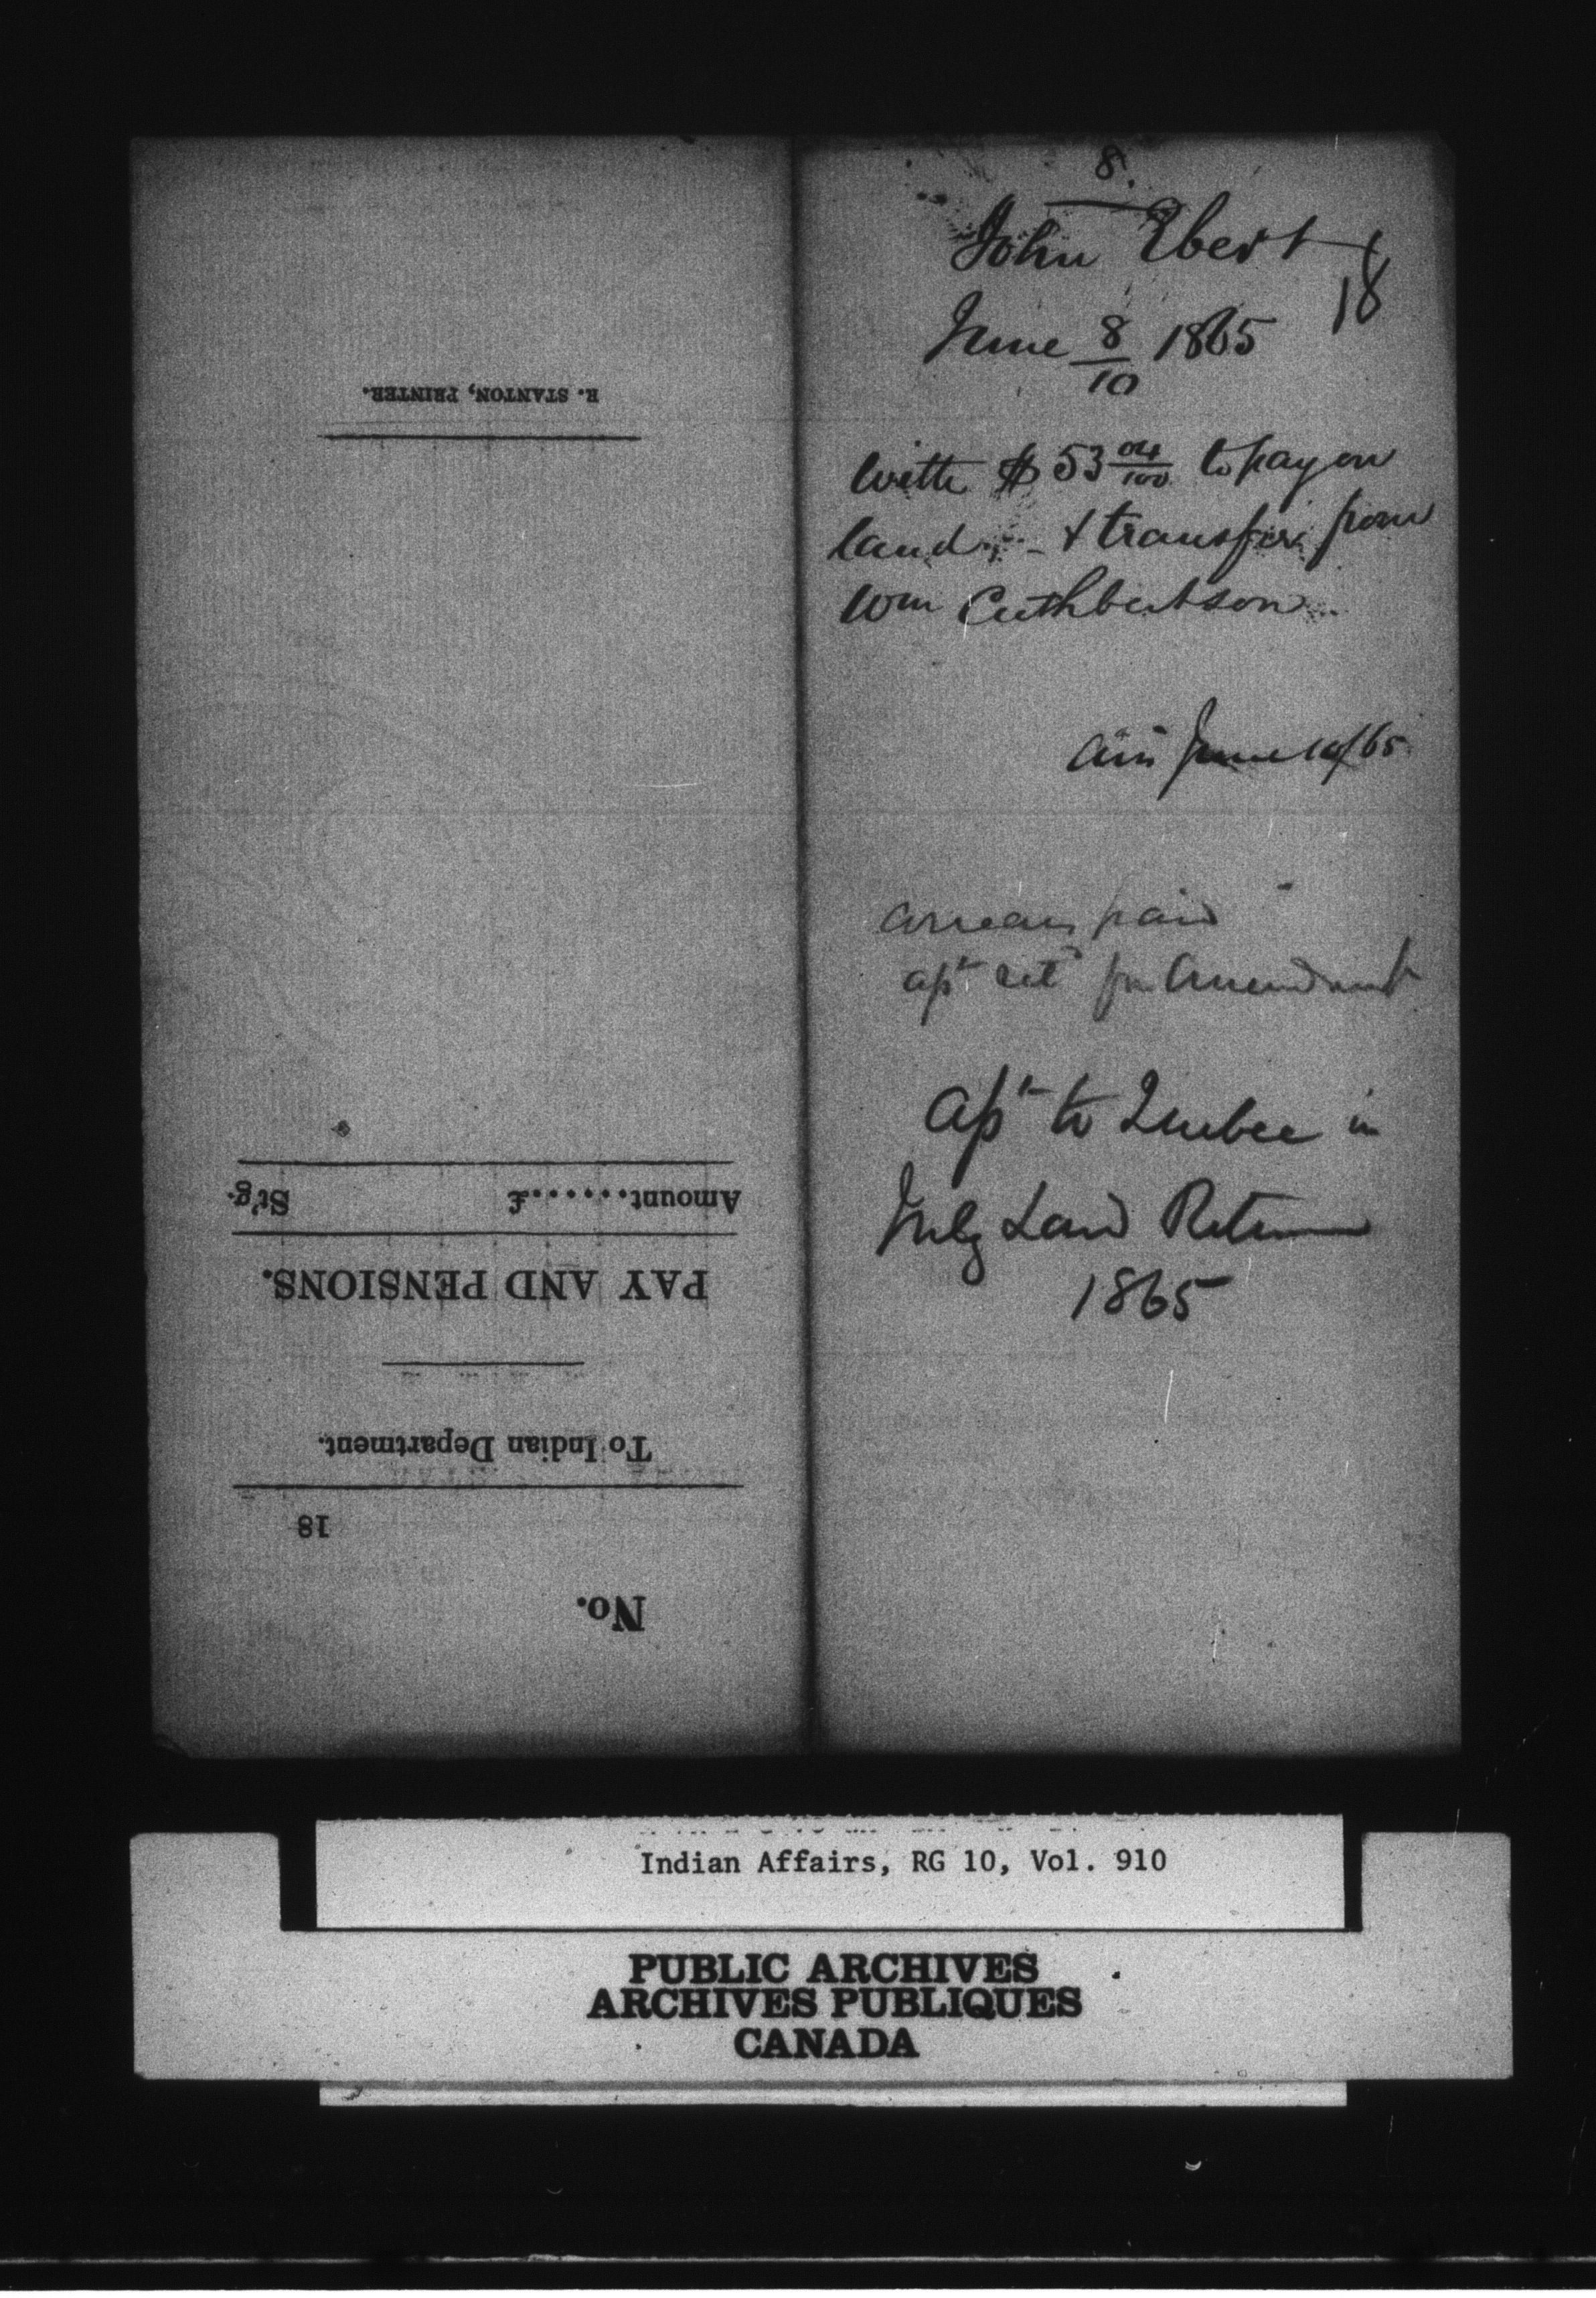 No.
18
To Indian Department.
PAY AND PENSIONS.
Amount........£ St'g.
R. STANTON, PRINTER.
8.
John Ebert
18
June 8/10 1865
with $53 04/100 to pay on
land, - & transfer from
Wm Cuthbertson
June 10/65
arrears paid
apn ret for Amendment
apn to Quebec in
July Land Return
1865
Indian Affairs, RG 10, Vol. 910
PUBLIC ARCHIVES
ARCHIVES PUBLIQUES
CANADA